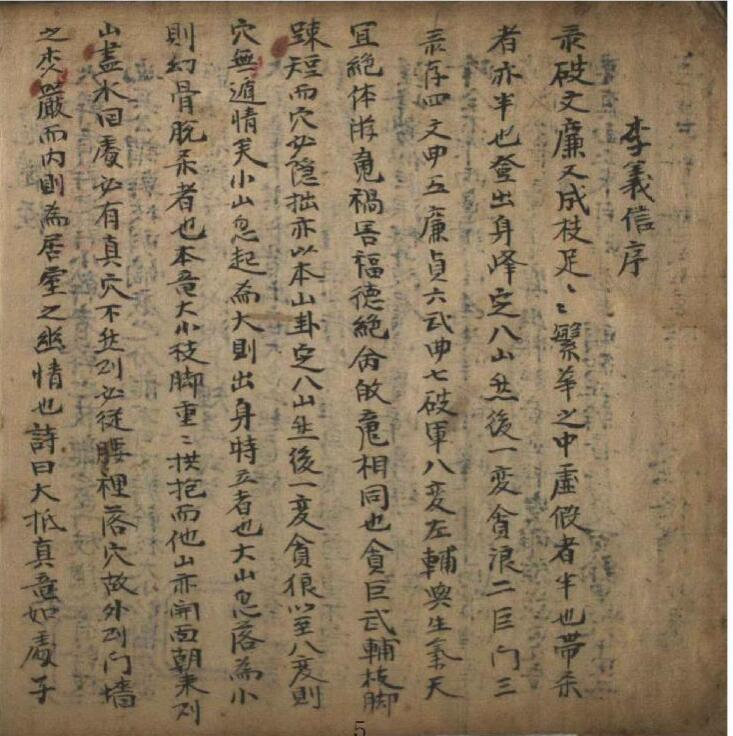 李義信序
彔破文廉又成枝足〻〻繁華之中虛假者半也帶杀
者亦半也登出身峰定八山然後一变貪浪二巨门三
彔存四文曲五廉貞六武曲七破軍八変左輔與生氣天
宜絶体遊䰟禍害福德絶命敀䰟相同也貪巨武輔枝脚
踈短而穴必隐拙亦以本山卦定八山然後一変貪狼以至八变則
穴無遁情矣小山忽起為大則出身特立者也大山忽落為小
則幻骨脫杀者也本竜大小枝脚重〻拱抱而他山亦開面朝来則
山盡水回處必有真穴不然則必従腰裡落穴故外則门墻
之森嚴而内則為居室之幽情也詩曰大抵真竜如處子
5